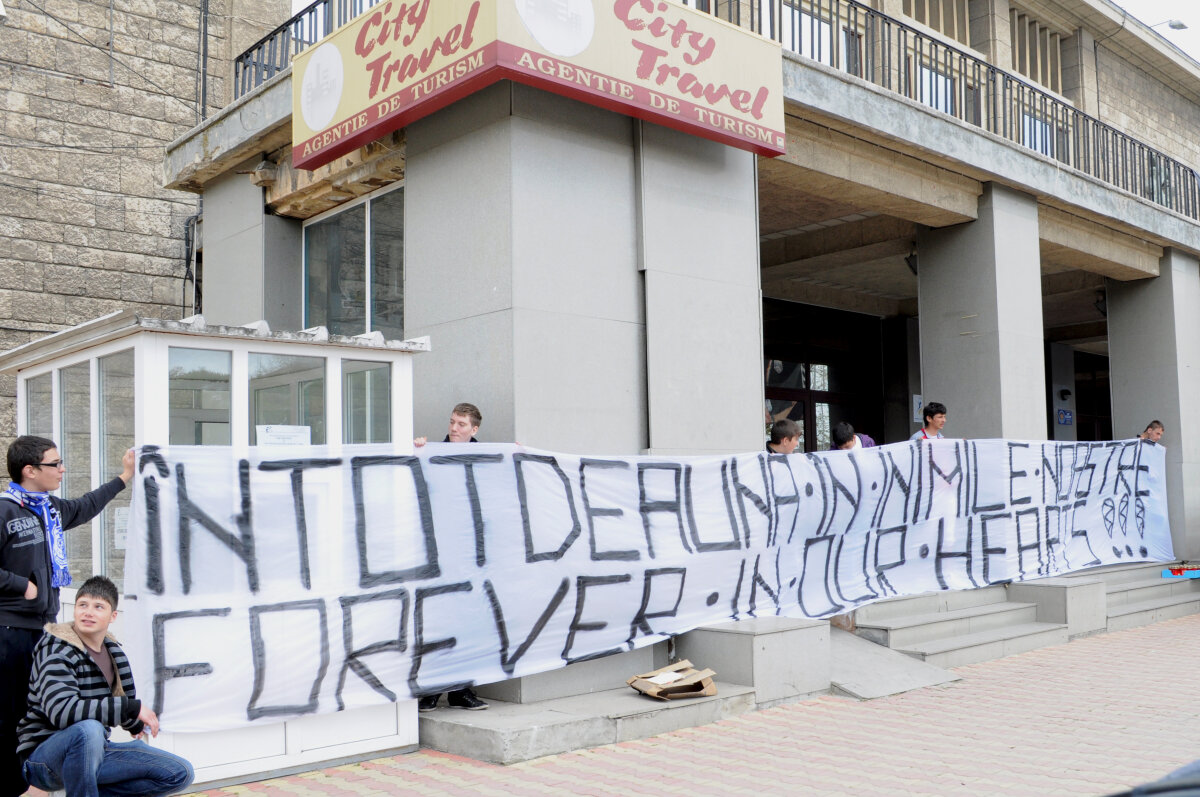 City
Travel
AGENTIE DE TURISM
City
Travel
AGENTIE DE TURISM
ÎNTOTDEAUNA·IN·INIMILE·NOSTRE
FOREVER·IN·OUR·HEARTS !!!